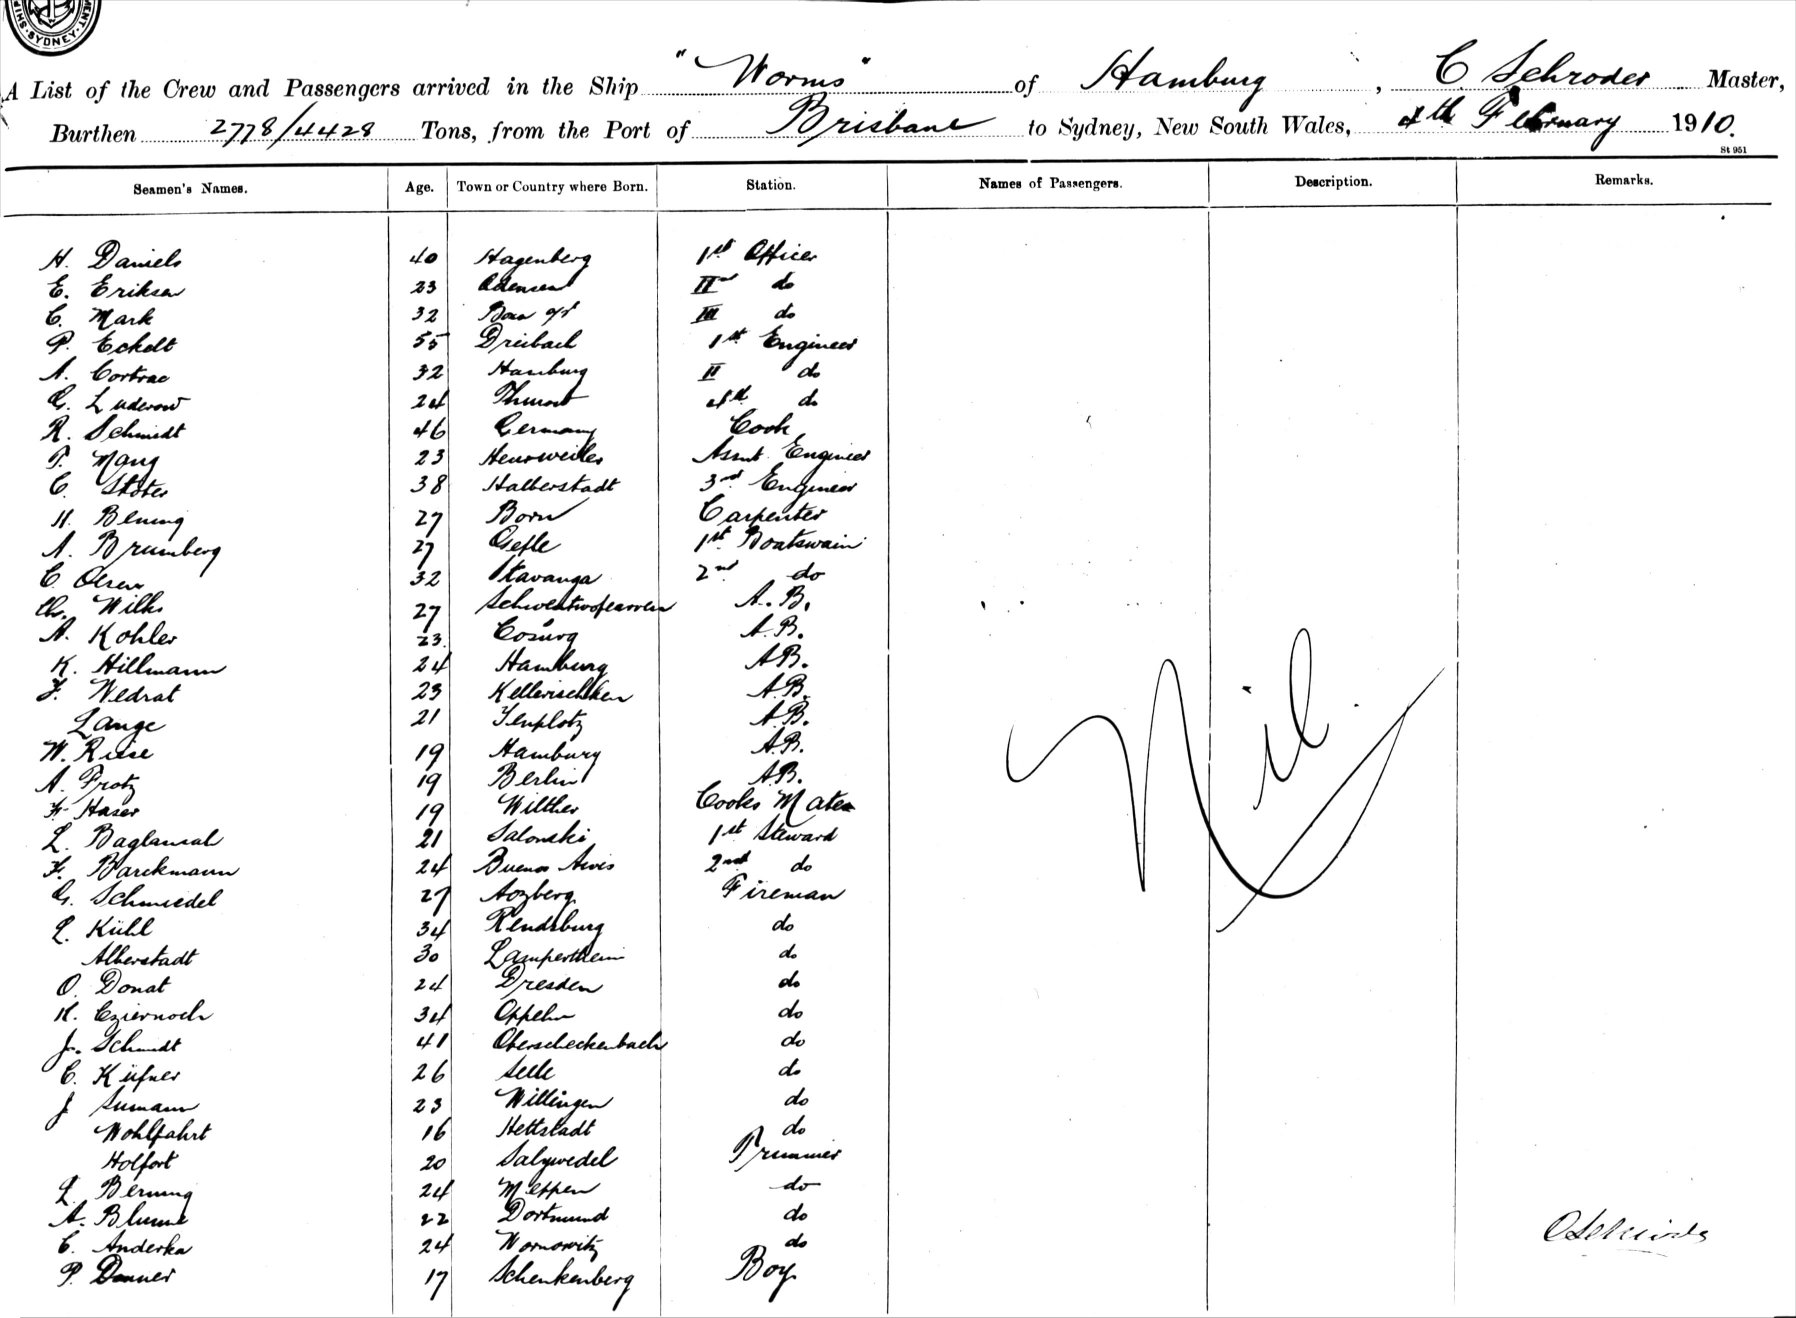 MENT · SYDNEY · SHIP
A List of the Crew and Passengers arrived in the Ship "Worms" of Hamburg, C Schroder Master,
Burthen 2778/4428 Tons, from the Port of Brisbane to Sydney, New South Wales, 4th February 1910.
St 951
Seamen's Names. Age. Town or Country where Born. Station. Names of Passengers. Description. Remarks.
H. Daniels 40 Hagenberg 1st Officer
E. Eriksen 23 Odensen IInd do
C. Mark 32 III do
P. Eckelt 55 Dreibach 1st Engineer
A. Cortrae 32 Hamburg II do
G. Luderow 24 4th do
R. Schmidt 46 Germany Cook
T. Mang 23 Heusweiler Assnt Engineer
C. Stoter 38 Halberstadt 3rd Engineer
H. Bening 27 Born Carpenter
A. Brumberg 27 Gefle 1st Boatswain
C Olsen 32 Stavanga 2nd do
Ch. Wilks 27 A. B.
A. Kohler 23 Coburg A.B.
K. Hillmann 24 Hamburg A.B.
F. Nedrat 23 Kellerischken A.B.
Lange 21 A.B.
W. Riese 19 Hamburg A.B.
A. Protz 19 Berlin A.B.
F. Haser 19 Wilther Cooks Mate
L. Baglansal 21 Salonski 1st Steward
F. Barckmann 24 Buenos Aires 2nd do
G. Schmiedel 27 Aozberg Fireman
L. Kühl 34 Rendsburg do
Alberstadt 30 Lampertheim do
O. Donat 24 Dresden do
H. Cziernoch 34 Oppeln do
J. Schmidt 41 Oberscheckenbach do
C. Küfner 26 Selb do
J Sumann 23 Willingen do
Wohlfahrt 16 Hettstadt do
Holfort 20 Salzwedel Trimmer
L. Berning 24 Meppen do
A. Blume 22 Dortmund do
C. Anderka 24 Wornowitz do
P. Danner 17 Schenkenberg Boy
Nil.